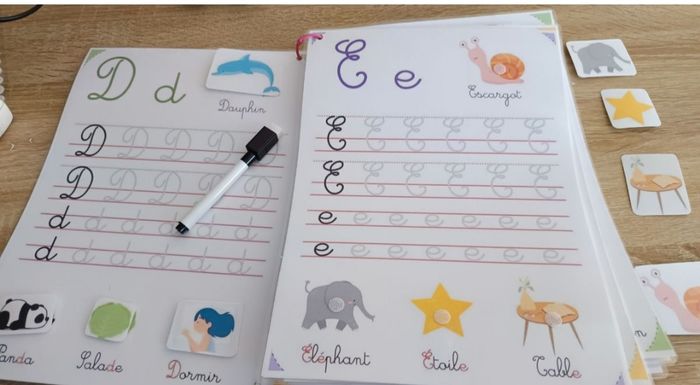 D d
Dauphin
D D D D D
D D D D D
d d d d d d
d d d d d d
Panda Salade Dormir
E e
Escargot
E E E E E E
E E E E E E
e e e e e e e
e e e e e e e
Éléphant Étoile Table